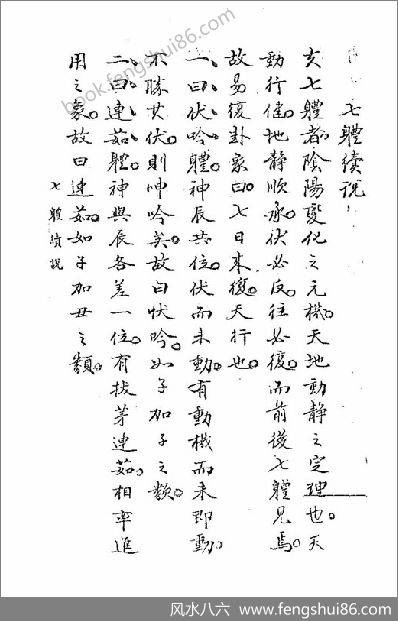 七體續説
夫七體者。陰陽變化之元機。天地動静之定理也。天
動行健。地静順承。伏必反。往必復。而前後七體見焉。
故易復卦彖曰。七日來復。天行也。
一、曰伏吟體。神辰共位。伏而未動。有動機而未即動。
不勝其伏。則呻吟矣。故曰伏吟。如子加子之類。
二、曰連茹體。神與辰各差一位。有拔茅連茹。相率進
用之象。故曰連茹。如子加丑之類。
七體續説
book.fengshui86.com
风水八六 www.fengshui86.com